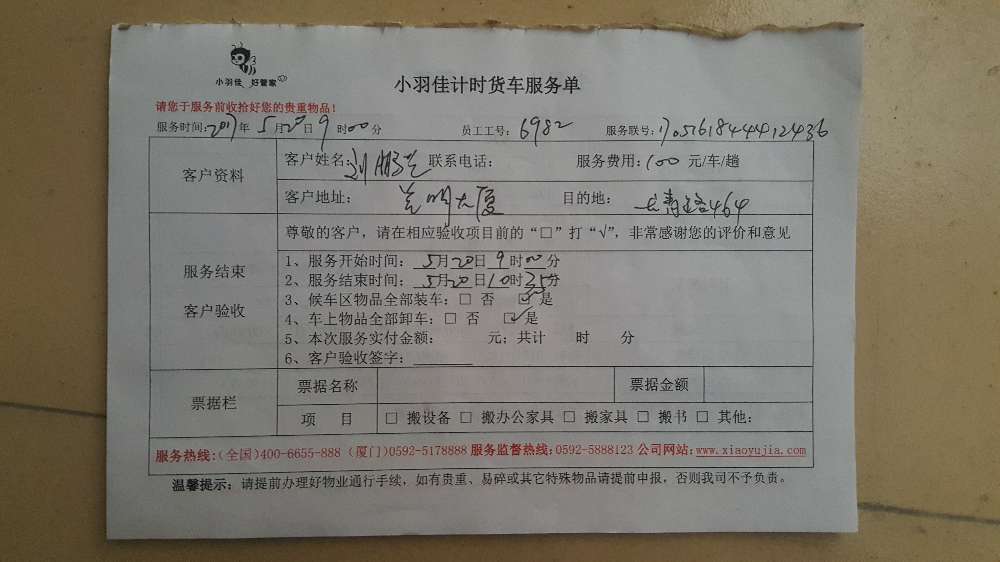 小羽佳 好管家
小羽佳计时货车服务单
请您于服务前收拾好您的贵重物品！
服务时间：2017年 5月20日 9时00分 员工工号：6982 服务联号：170516184441 2436
客户资料
客户姓名：刘鹏 联系电话： 服务费用：100 元/车/趟
客户地址：光明大厦 目的地：464
尊敬的客户，请在相应验收项目前的“□”打“√”，非常感谢您的评价和意见
服务结束
客户验收
1、服务开始时间：5月20日9时00分
2、服务结束时间：5月20日10时35分
3、候车区物品全部装车：□ 否 ☑ 是
4、车上物品全部卸车：□ 否 ☑ 是
5、本次服务实付金额： 元；共计 时 分
6、客户验收签字：
票据栏
票据名称 票据金额
项 目 □ 搬设备 □ 搬办公家具 □ 搬家具 □ 搬书 □ 其他：
服务热线：(全国)400-6655-888 (厦门)0592-5178888 服务监督热线：0592-5888123 公司网站：www.xiaoyujia.com
温馨提示：请提前办理好物业通行手续，如有贵重、易碎或其它特殊物品请提前申报，否则我司不予负责。